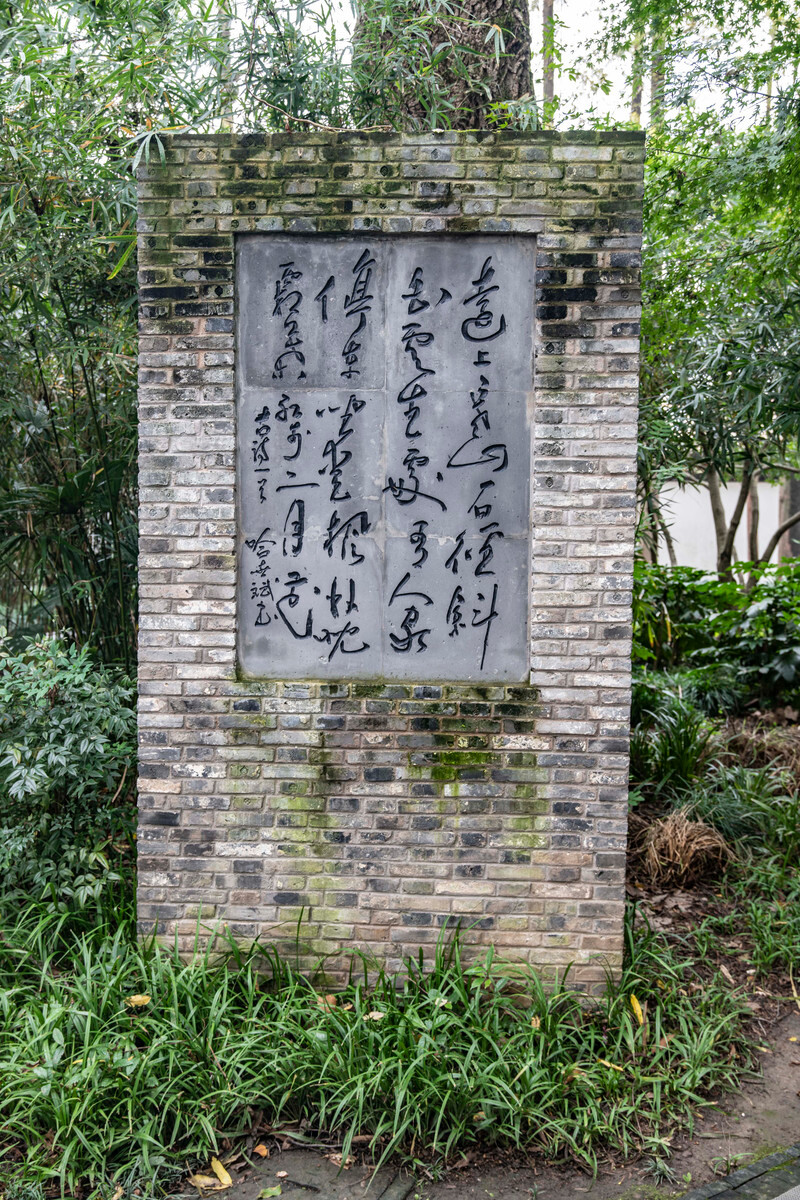 遠上寒山石徑斜
白雲生處有人家
停車坐愛楓林晚
霜葉紅於二月花
詩一首
哈斌書